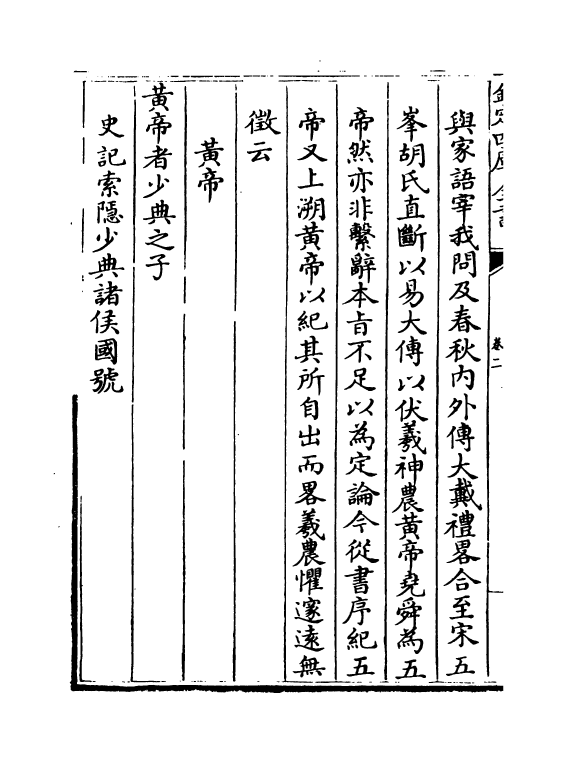 卷二
與家語宰我問及春秋內外傳大戴禮畧合至宋五
峯胡氏直斷以易大傳以伏羲神農黃帝堯舜為五
帝然亦非繫辭本旨不足以為定論今從書序紀五
帝又上溯黃帝以紀其所自出而畧羲農懼邃遠無
徵云
黃帝
黃帝者少典之子
史記索隱少典諸侯國號